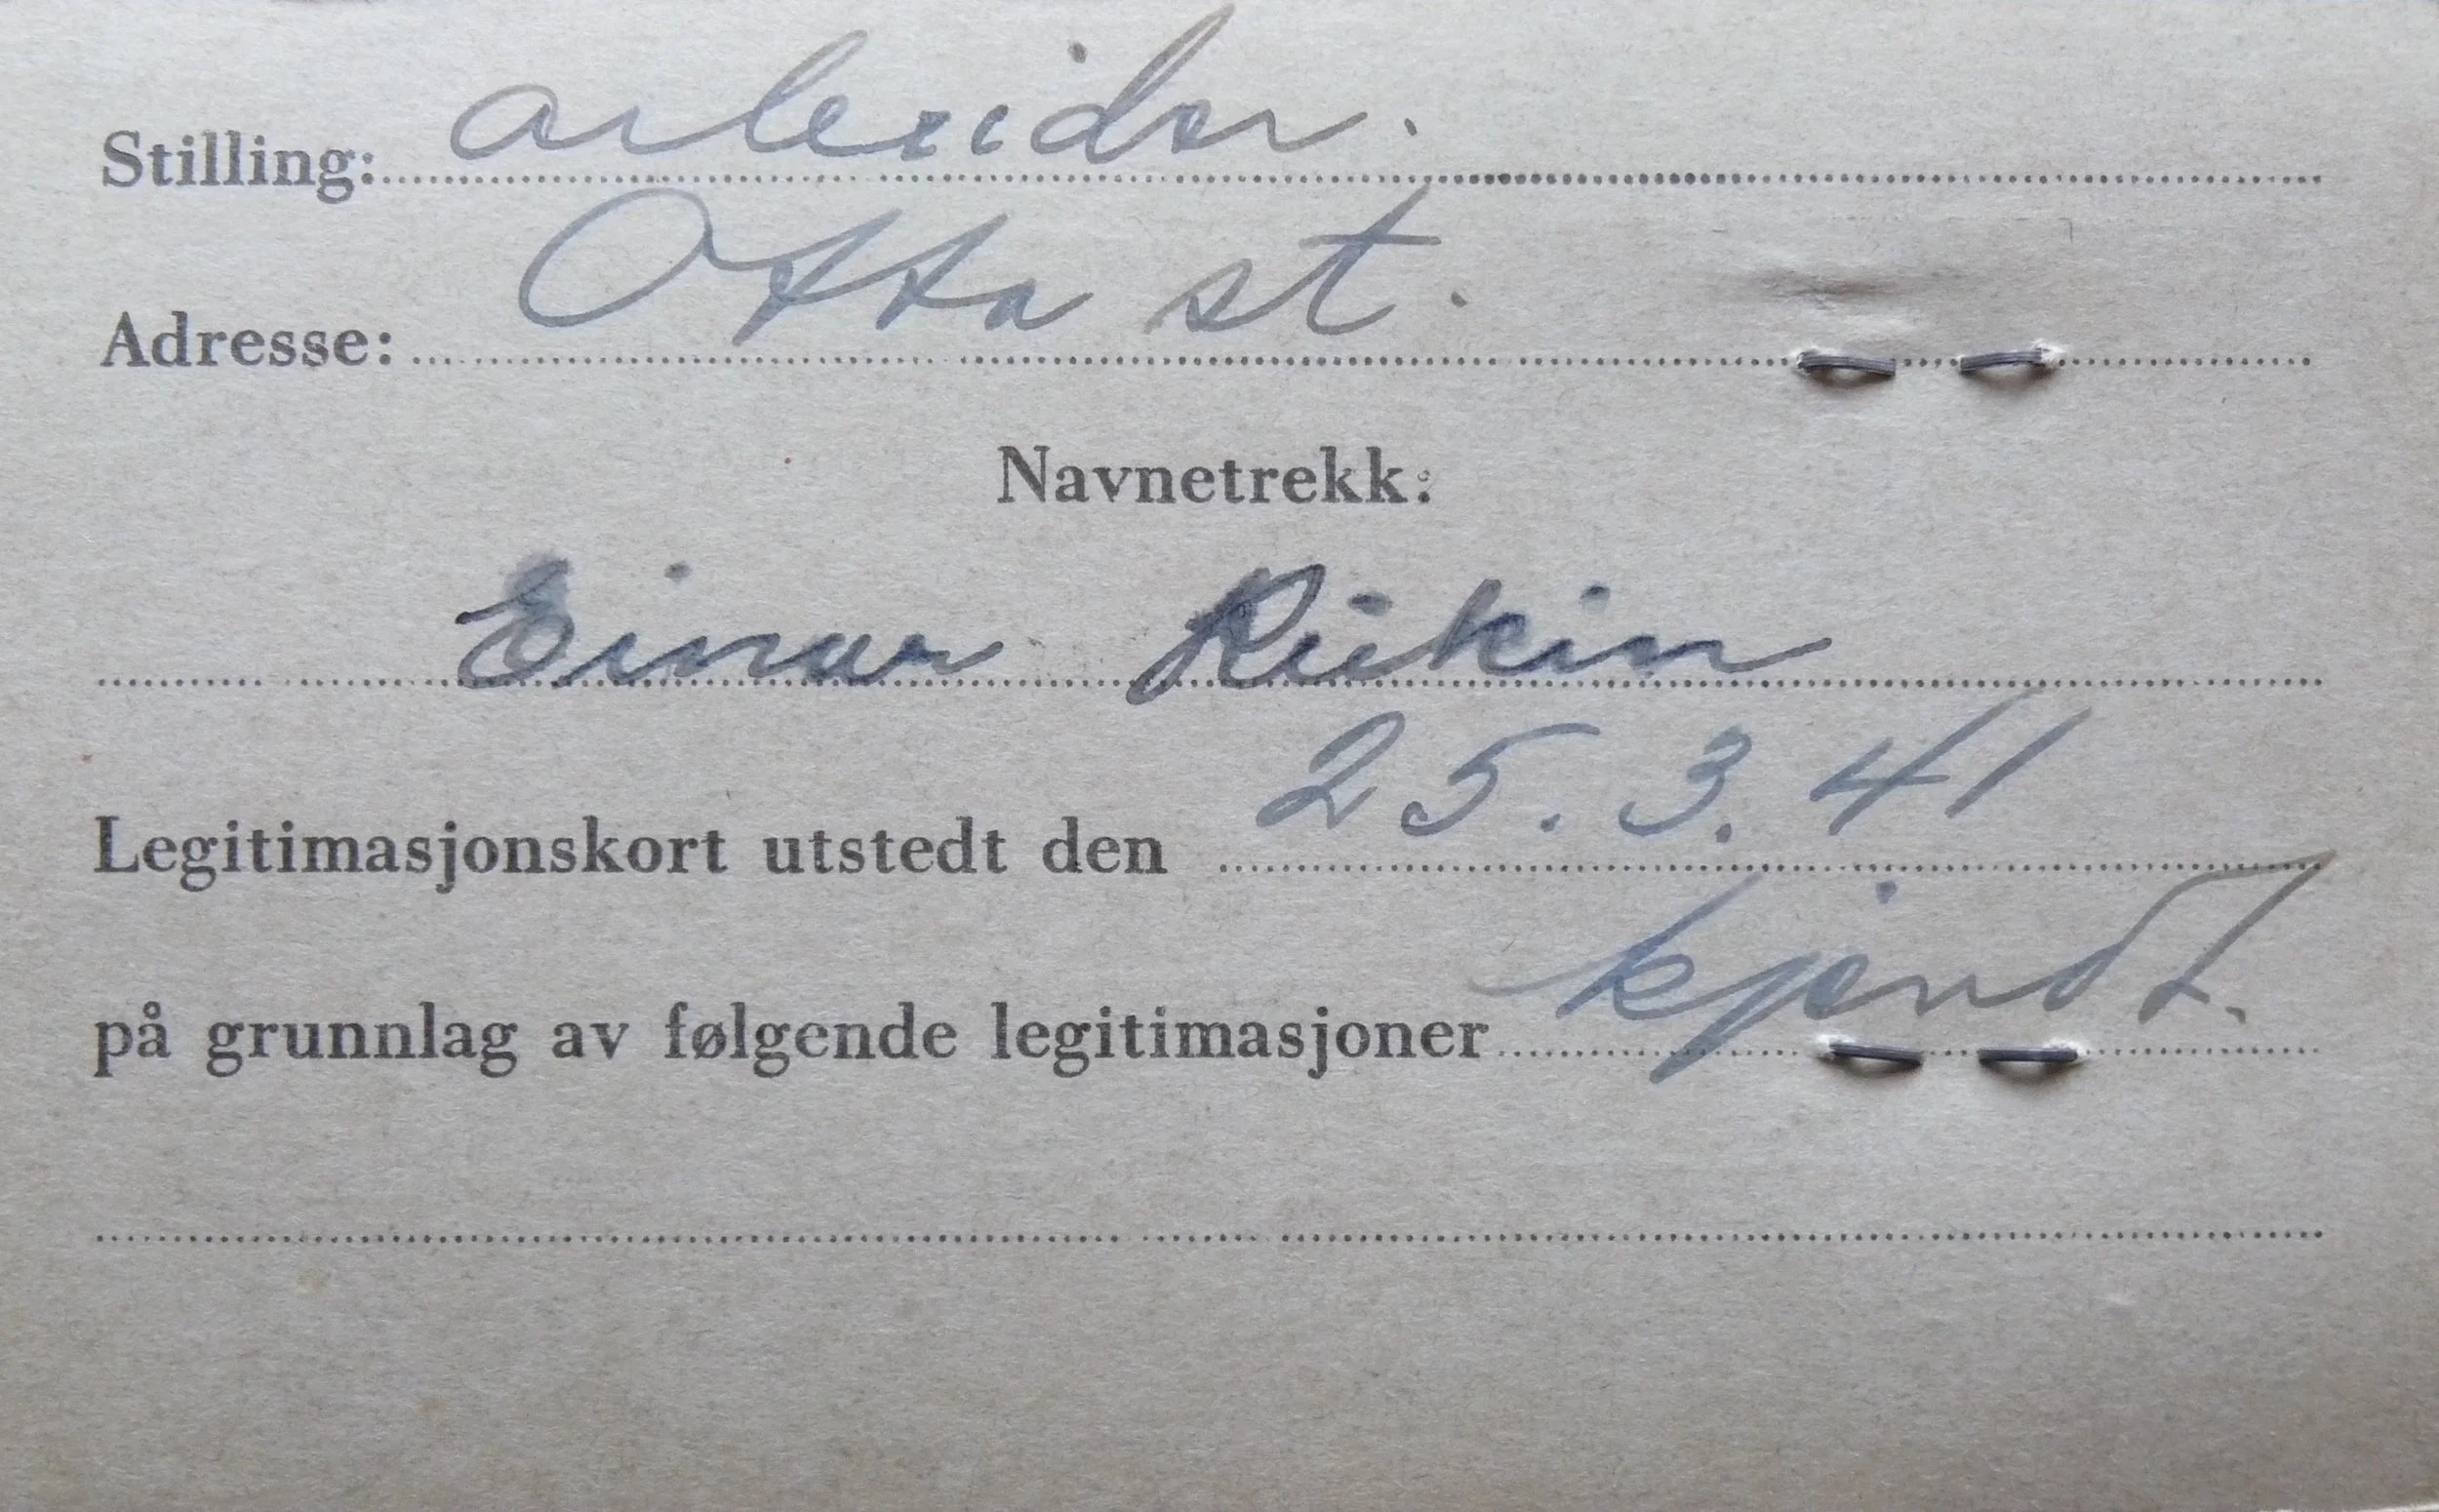 Stilling: arbeider.
Adresse: Otta st.
Navnetrekk:
Einar
Legitimasjonskort utstedt den 25.3.41
på grunnlag av følgende legitimasjoner kjendt.